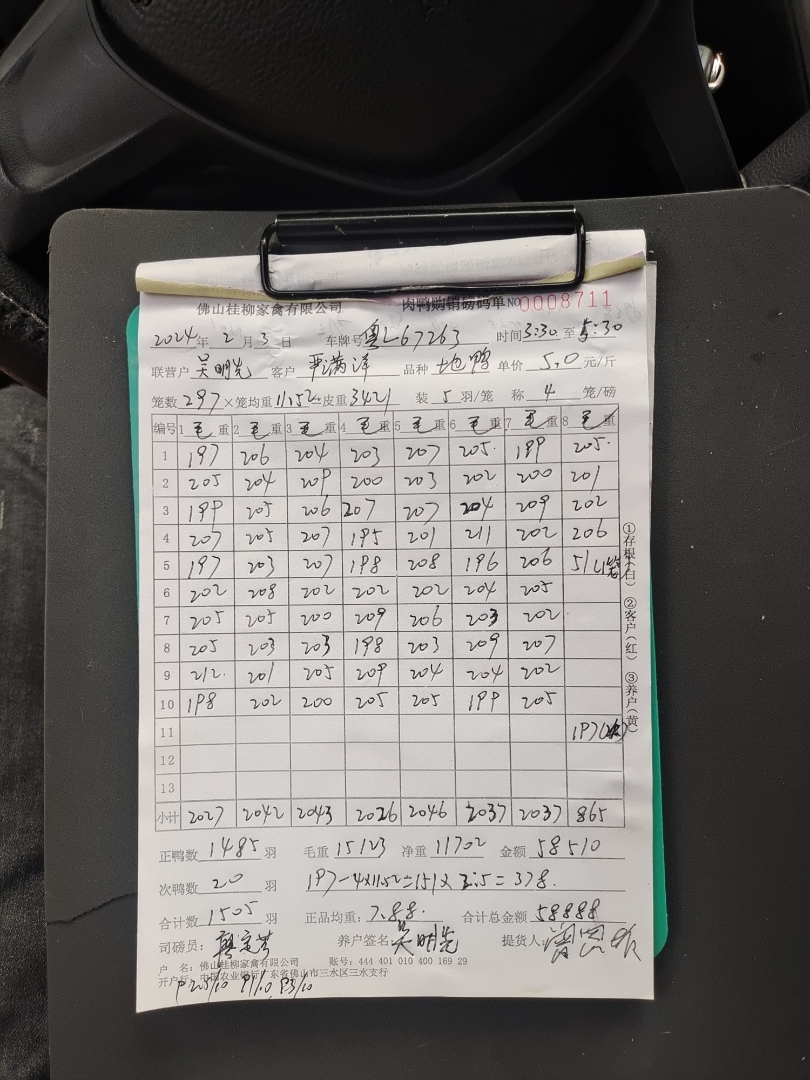 佛山桂柳家禽有限公司 肉鸭购销磅码单 NO 0008711
2024年 2月 3日 车牌号 粤L67263 时间 3:30 至 5:30
联营户 吴明先 客户 严满洋 品种 地鸭 单价 5.0 元/斤
笼数 297 ×笼均重 11.52 =皮重 3421 装 5 羽/笼 称 4 笼/磅
编号 1 毛重 2 毛重 3 毛重 4 毛重 5 毛重 6 毛重 7 毛重 8 毛重
1 197 206 204 203 207 205 199 205
2 205 204 209 200 203 202 200 201
3 199 205 206 207 207 204 209 202
4 207 205 207 195 201 211 202 206
5 197 203 207 198 208 196 206 51(1笼)
6 202 208 202 202 202 204 205
7 205 205 200 209 206 203 202
8 205 203 203 198 203 209 207
9 212 201 205 209 204 204 202
10 198 202 200 205 205 199 205
11 197(次)
12
13
小计 2027 2042 2043 2026 2046 2037 2037 865
①存根(白) ②客户(红) ③养户(黄)
正鸭数 1485 羽 毛重 15123 净重 11702 金额 58510
次鸭数 20 羽 197-4×11.52=151×2.5=378.
合计数 1505 羽 正品均重: 7.88. 合计总金额 58888
司磅员: 养户签名: 吴明先 提货人:
户 名: 佛山桂柳家禽有限公司 账号: 444 401 010 400 169 29
开户行: 中国农业银行广东省佛山市三水区三水支行